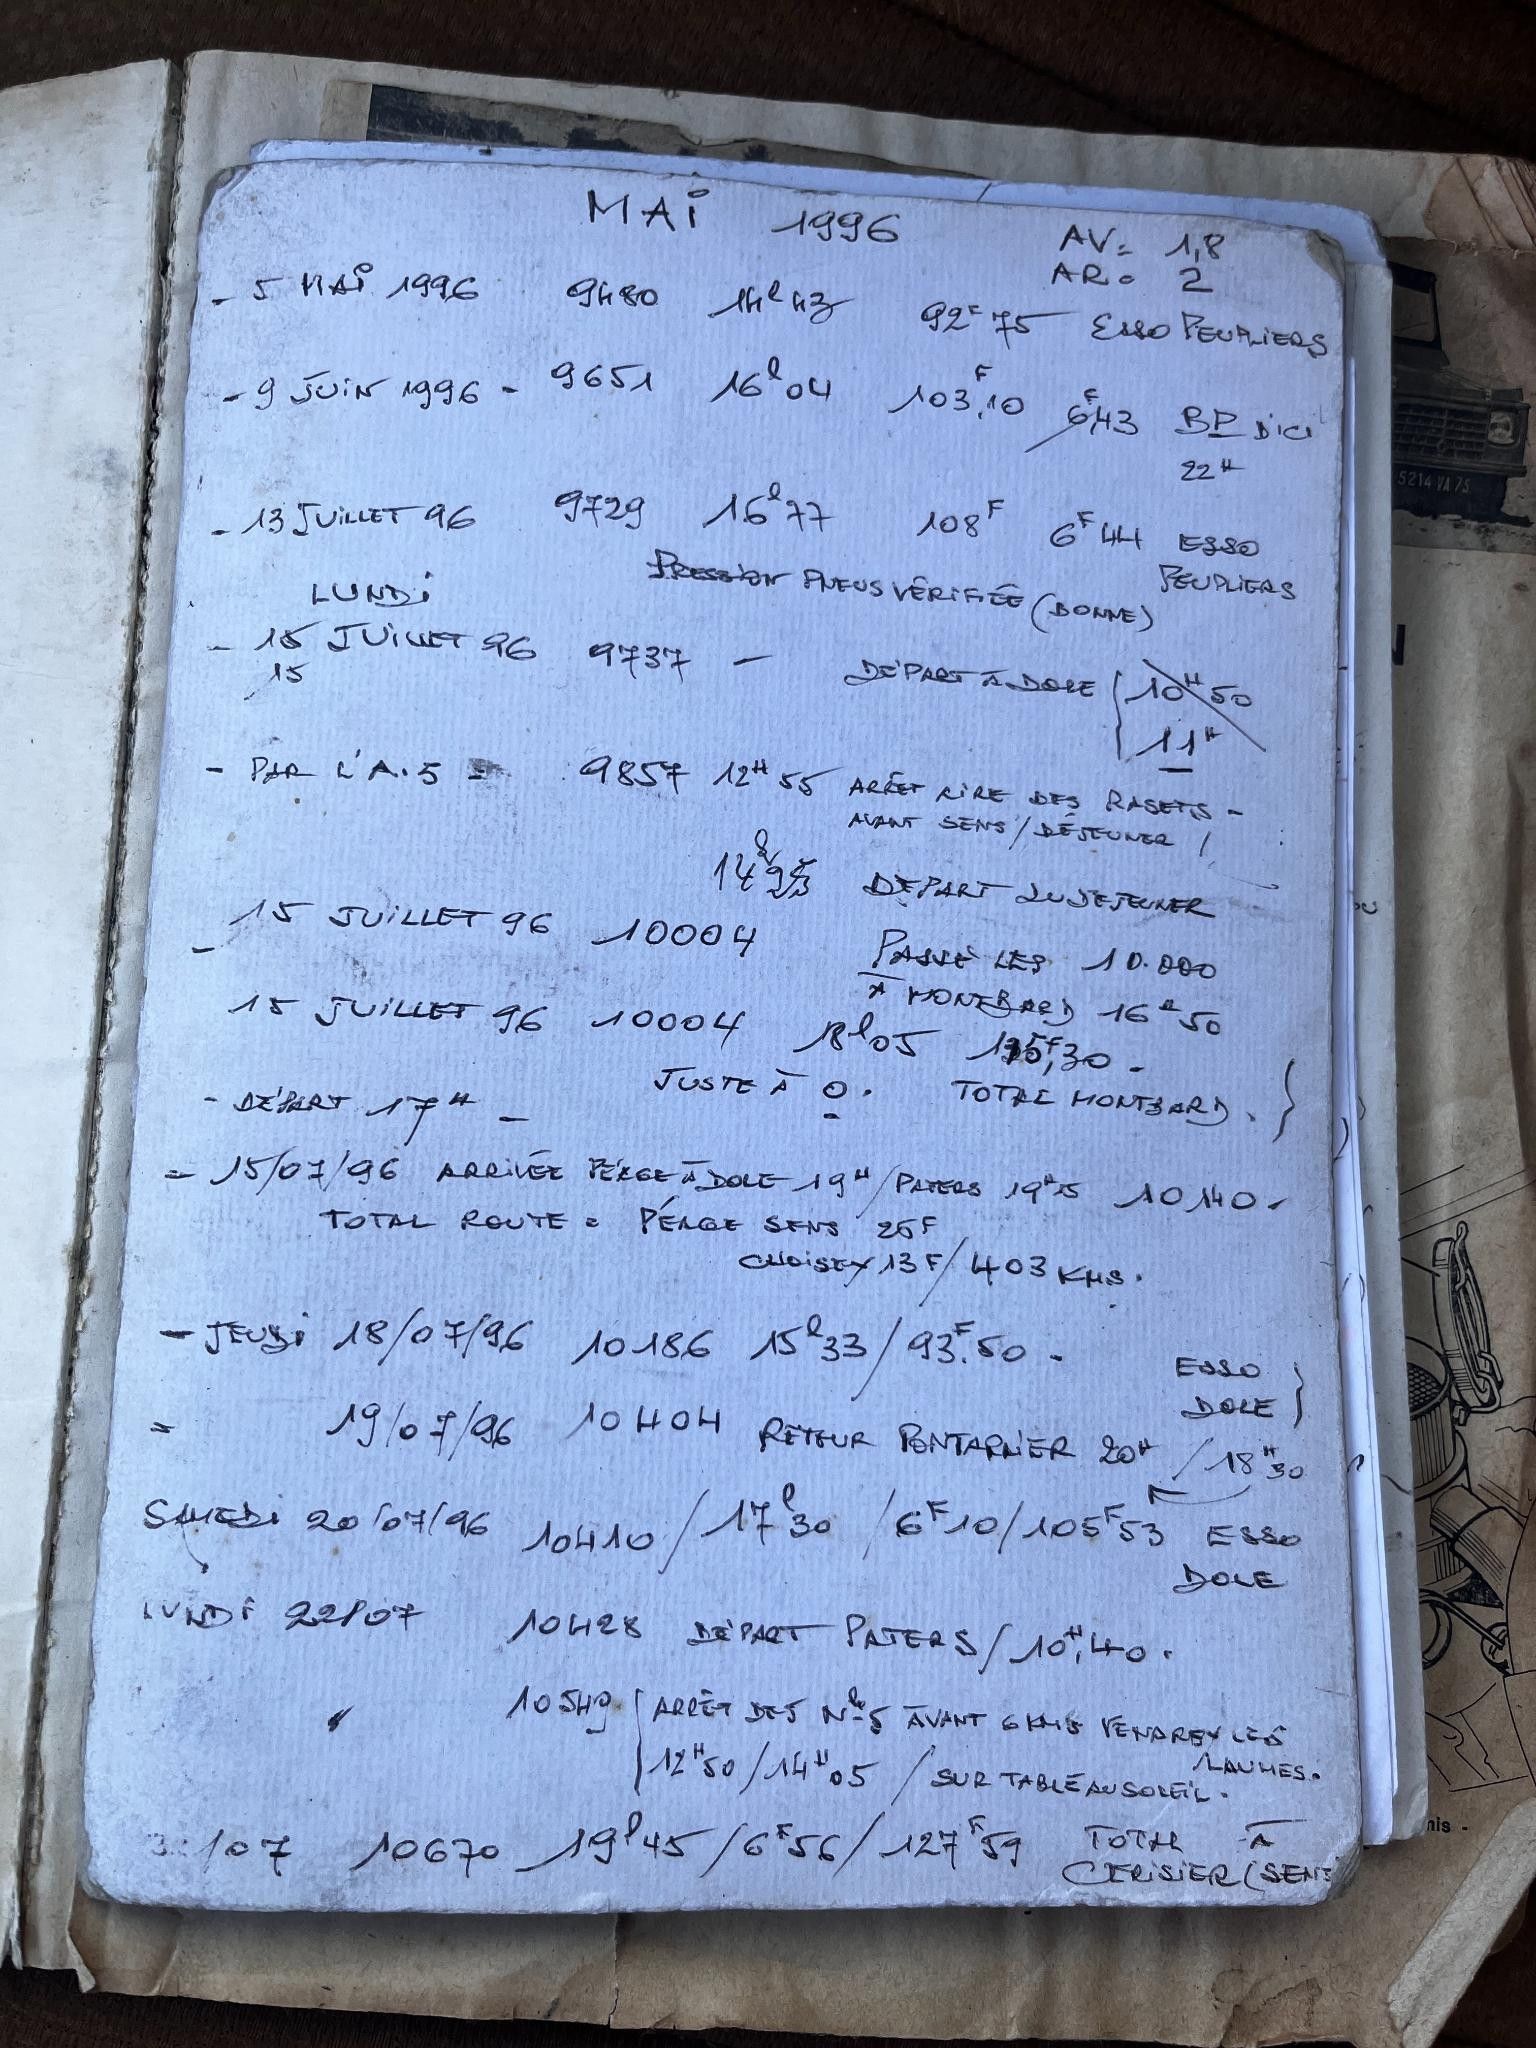 MAI 1996
AV= 1,8
AR= 2
- 5 MAI 1996 9480 14l43 92F75 ESSO PEUPLIERS
- 9 JUIN 1996 - 9651 16l04 103F,10 6F43 BP D'ICI
22H
- 13 JUILLET 96 9729 16l77 108F 6F44 ESSO
PEUPLIERS
PRESSION PNEUS VÉRIFIÉE (BONNE)
LUNDI
- 15 JUILLET 96 9737 - DÉPART À DOLE 10H50
15
11H
- PAR L'A.5 = 9857 12H55 ARRÊT AIRE DES RASETS -
AVANT SENS / DÉJEUNER /
14 DÉPART DU DEJEUNER
- 15 JUILLET 96 10004 PASSÉ LES 10.000
À MONTBARD 16H50
15 JUILLET 96 10004 18l05 ,30 -
JUSTE À 0. TOTAL MONTBARD.
- DÉPART 17H -
= 15/07/96 ARRIVÉE PÉAGE À DOLE 19H / PATERS 19H15 10140 -
TOTAL ROUTE = PÉAGE SENS 26F
CHOISEY 13F / 403 KMS.
- JEUDI 18/07/96 10186 15l33 / 93F.50 - ESSO
DOLE
= 19/07/96 10404 RETOUR PONTARLIER 20H / 18H30
SAMEDI 20/07/96 10410 / 17l30 / 6F10 / 105F53 ESSO
DOLE
LUNDI 22/07 10428 DÉPART PATERS / 10H,40.
" 10549 ARRÊT DES AVANT 6 KMS VENAREY LES
LAUMES.
12H50 / 14H05 / SUR TABLE AU SOLEIL.
/07 10670 19l45 / 6F56 / 127F59 TOTAL À
CERISIER (SENS
5214 VA 75